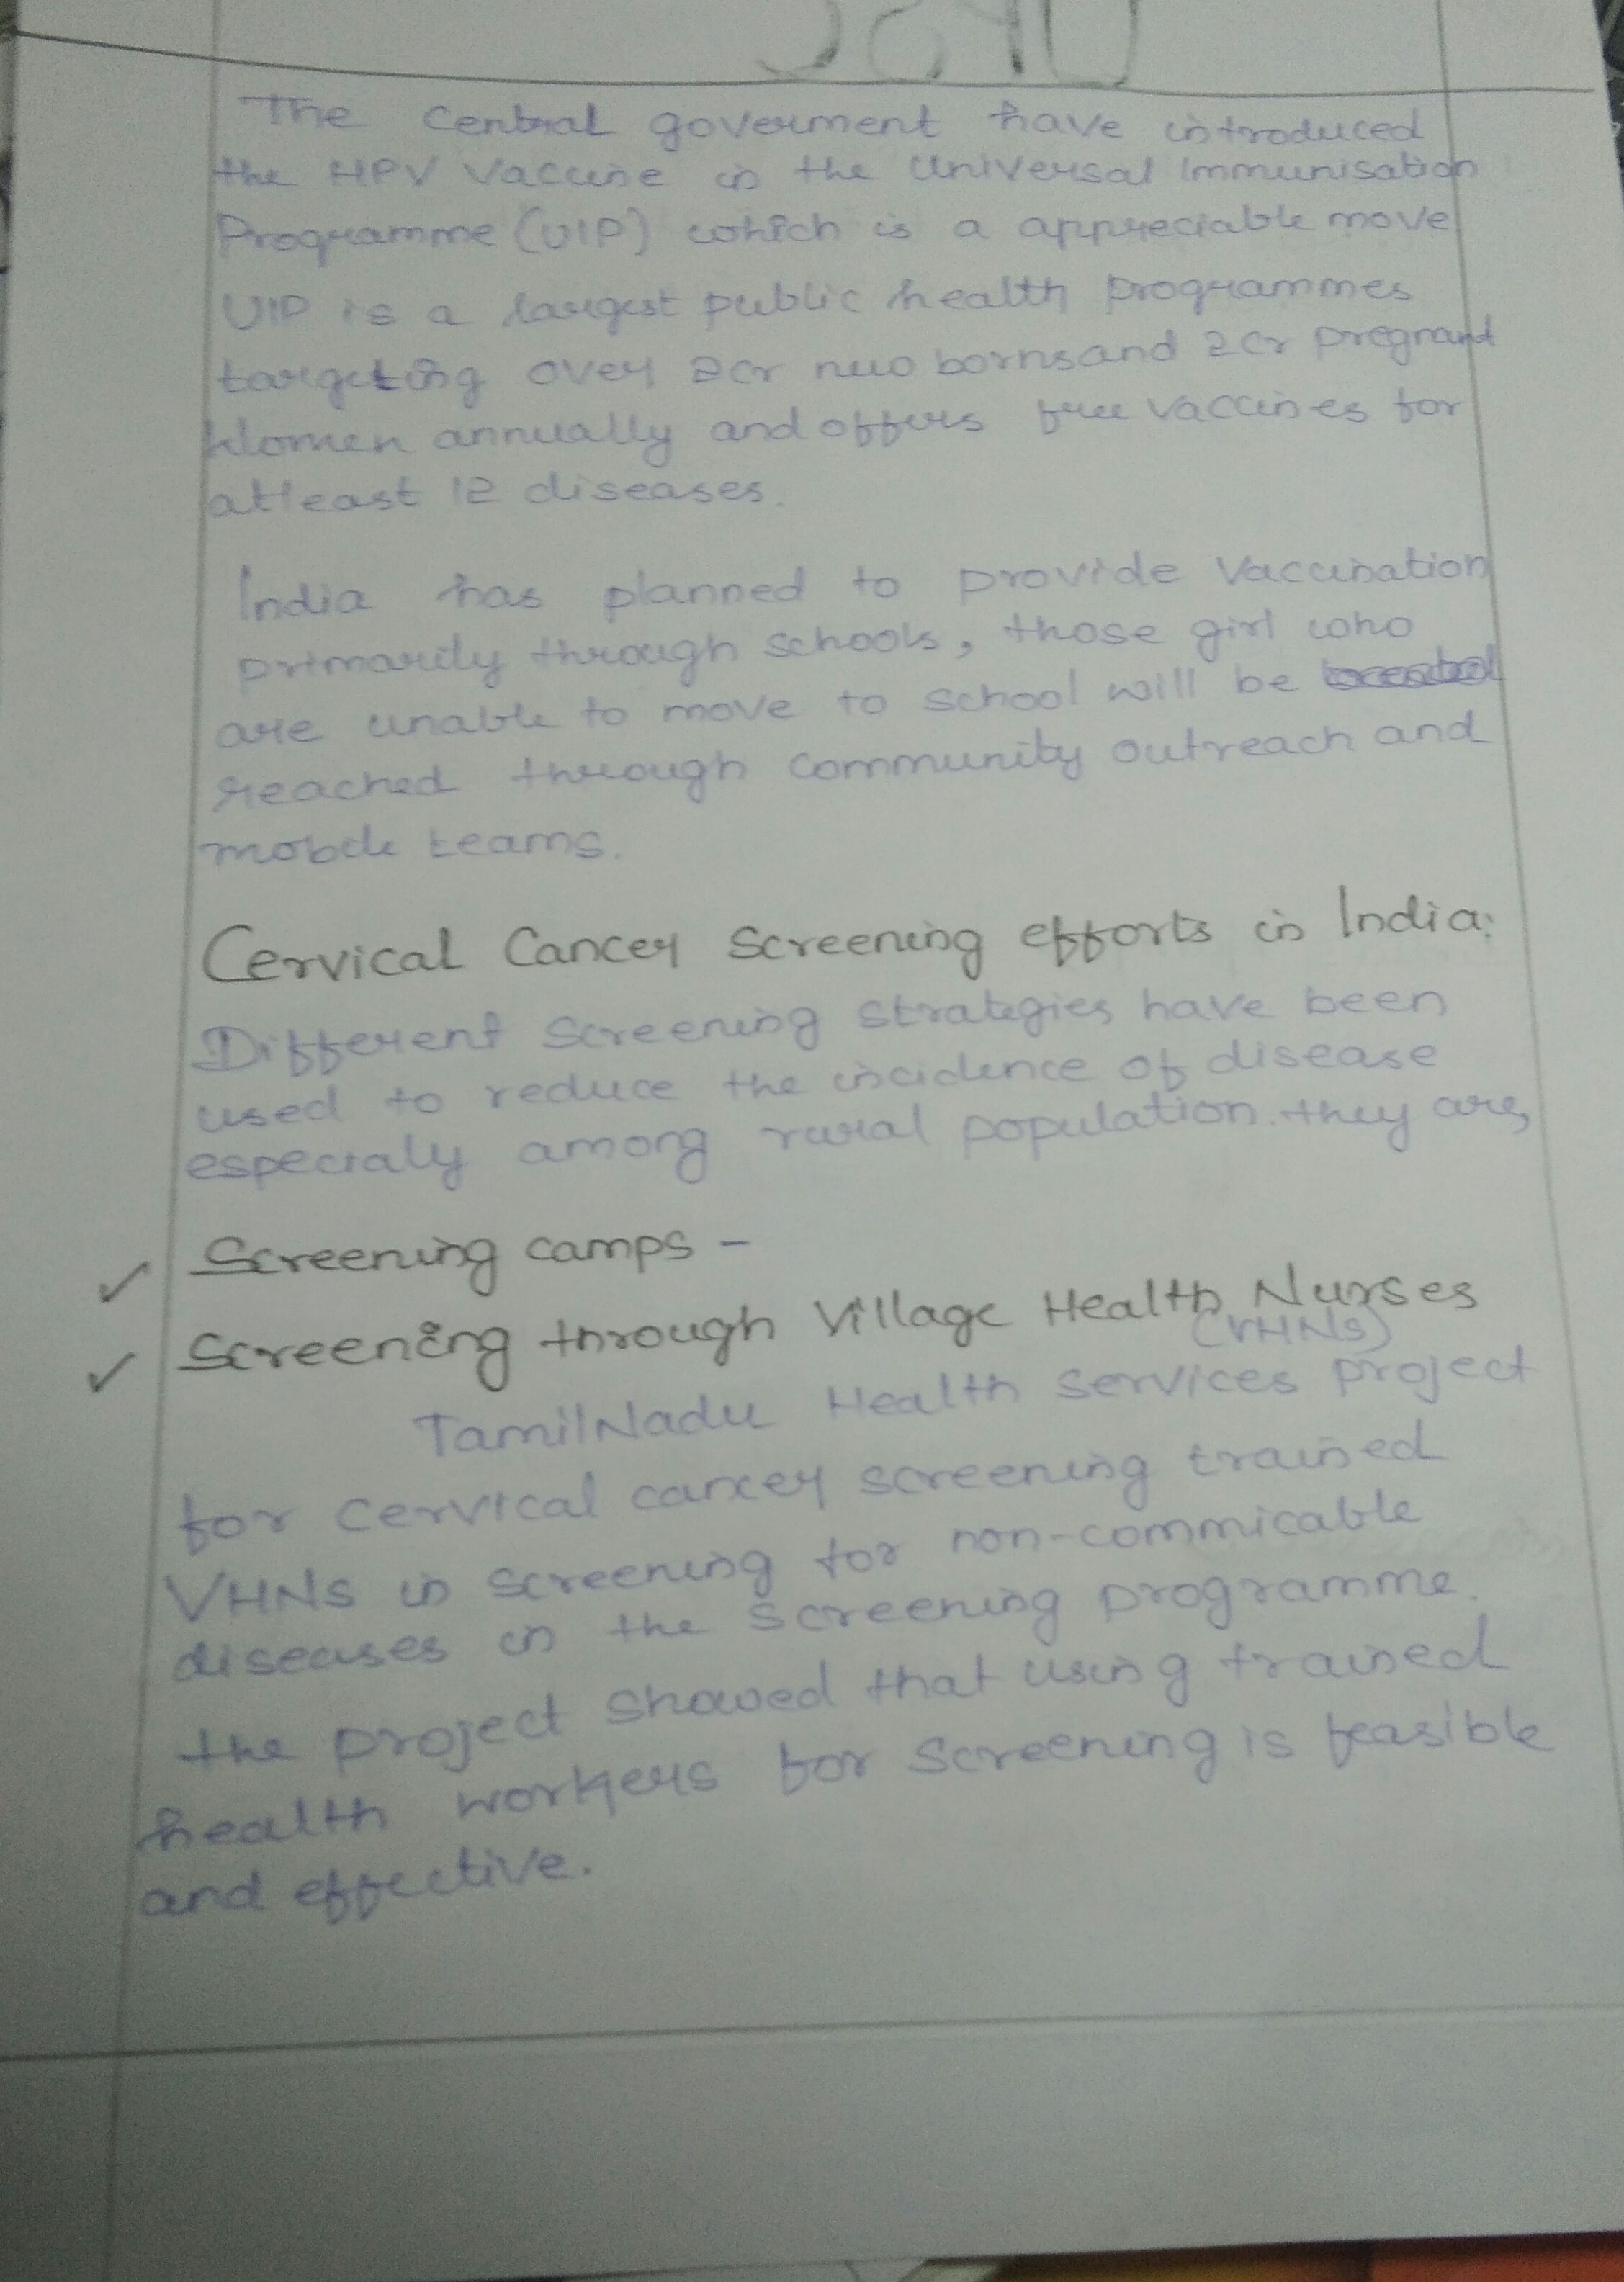 The Central goverment have introduced
the HPV Vaccine in the Universal Immunisation
Programme (UIP) which is a appreciable move
UIP is a largest public health programmes
targeting over 2cr new borns and 2cr pregnant
Women annually and offers free vaccines for
atleast 12 diseases.
India has planned to provide Vaccination
primarily through schools, those girl who
are unable to move to school will be
reached through community outreach and
mobile teams.
Cervical Cancer Screening efforts in India:
Different Screening Strategies have been
used to reduce the incidence of disease
especialy among rural population. they are,
✓ Screening camps -
✓ Screening through Village Health Nurses
(VHNs)
TamilNadu Health Services project
for cervical cancer screening trained
VHNs in screening for non-commicable
diseases in the screening programme.
the project showed that using trained
health workers for screening is feasible
and effective.